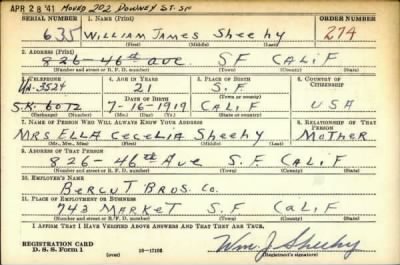 APR 28 '41 MOVED 202 DOWNEY ST. SF
SERIAL NUMBER 1. NAME (Print) ORDER NUMBER
635 WILLIAM JAMES Sheehy 274
(First) (Middle) (Last)
2. ADDRESS (Print)
826-46th ave. SF CALIF
(Number and street or R. F. D. number) (Town) (County) (State)
3. TELEPHONE 4. AGE IN YEARS 5. PLACE OF BIRTH 6. COUNTRY OF CITIZENSHIP
21 S.F.
(Town or county)
DATE OF BIRTH
S.K. 6072 7-16-1919 CALIF USA
(Exchange) (Number) (Mo.) (Day) (Yr.) (State or country)
7. NAME OF PERSON WHO WILL ALWAYS KNOW YOUR ADDRESS 8. RELATIONSHIP OF THAT PERSON
MRS ELLA CECELIA Sheehy MOTHER
(Mr., Mrs., Miss) (First) (Middle) (Last)
9. ADDRESS OF THAT PERSON
826-46th Ave S.F. CALIF
(Number and street or R. F. D. number) (Town) (County) (State)
10. EMPLOYER'S NAME
BERCUT BROS. CO.
11. PLACE OF EMPLOYMENT OR BUSINESS
743 MARKET S.F CALIF
(Number and street or R. F. D. number) (Town) (County) (State)
I AFFIRM THAT I HAVE VERIFIED ABOVE ANSWERS AND THAT THEY ARE TRUE.
REGISTRATION CARD
D. S. S. Form 1 (over) Wm. J. Sheehy
(Registrant's signature)